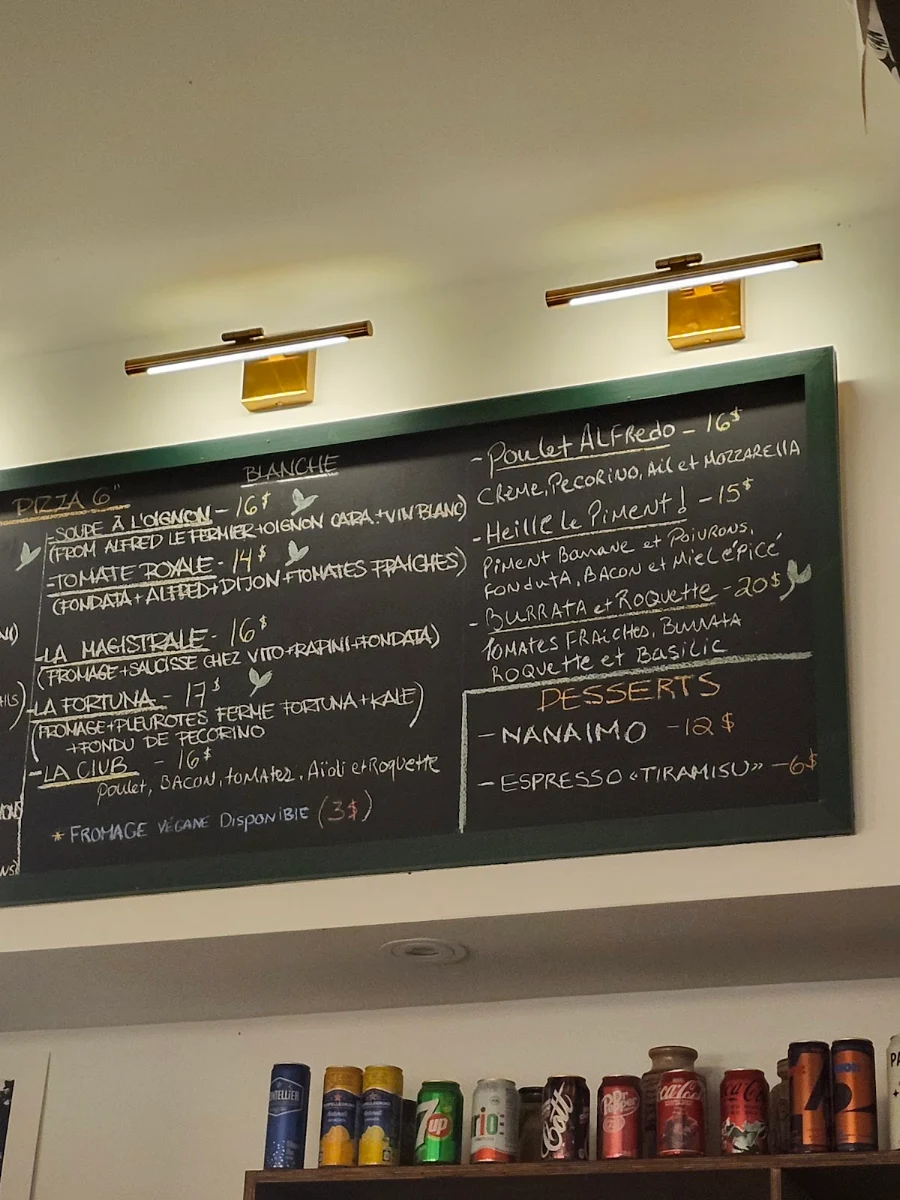 PIZZA 6"
BLANCHE
-SOUPE À L'OIGNON - 16$
(FROM ALFRED LE FERMIER+OIGNON CARA.+VIN BLANC)
-TOMATE ROYALE - 14$
(FONDATA+ALFRED+DIJON+TOMATES FRAICHES)
-LA MAGISTRALE - 16$
(FROMAGE+SAUCISSE CHEZ VITO+RAPINI+FONDATA)
-LA FORTUNA - 17$
(FROMAGE+PLEUROTES FERME FORTUNA+KALE)
+FONDU DE PECORINO
-LA CLUB - 16$
Poulet, BACON, tomates, Aïoli et Roquette
* FROMAGE VÉGANE DISPONIBLE (3$)
- Poulet ALFRedo - 16$
CRÈME, PECORINO, Ail et MOZZARELLA
- Heille le Piment! - 15$
PIMENT Banane et POIVRONS,
FONDUTA, BACON et Miel épicé
- BURRATA et Roquette - 20$
TOMATES FRAICHES, BURRATA
ROQUETTE et Basilic
DESSERTS
- NANAIMO - 12$
- ESPRESSO «TIRAMISU» - 6$
7up
rio:
Cott
Dr Pepper
23
Coca-Cola
Coca-Cola